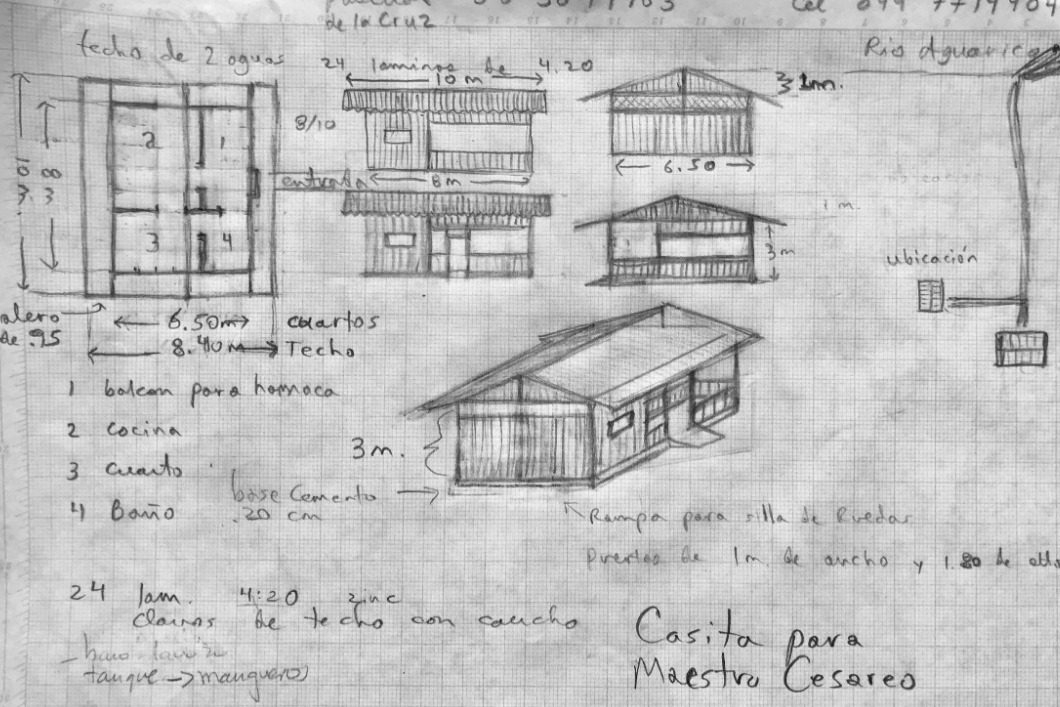 de la Cruz
Cel 099 7719904
techo de 2 aguas
24 laminas de 4.20
10 m
Rio Aguarico
1m.
8/10
2
1
6.50
entrada
8m
1 m.
3
4
3m
ubicación
10
3.3
8
3.3
alero
de .95
6.50m
cuartos
8.40 m
Techo
1 balcon para hamaca
2 cocina
3 cuarto
4 Baño
3m.
base Cemento
.20 cm
Rampa para silla de Ruedas
puertas de 1m de ancho y 1.80 de alto
24 lam. 4:20 zinc
clavos de techo con caucho
tanque → mangueras
Casita para
Maestro Cesareo